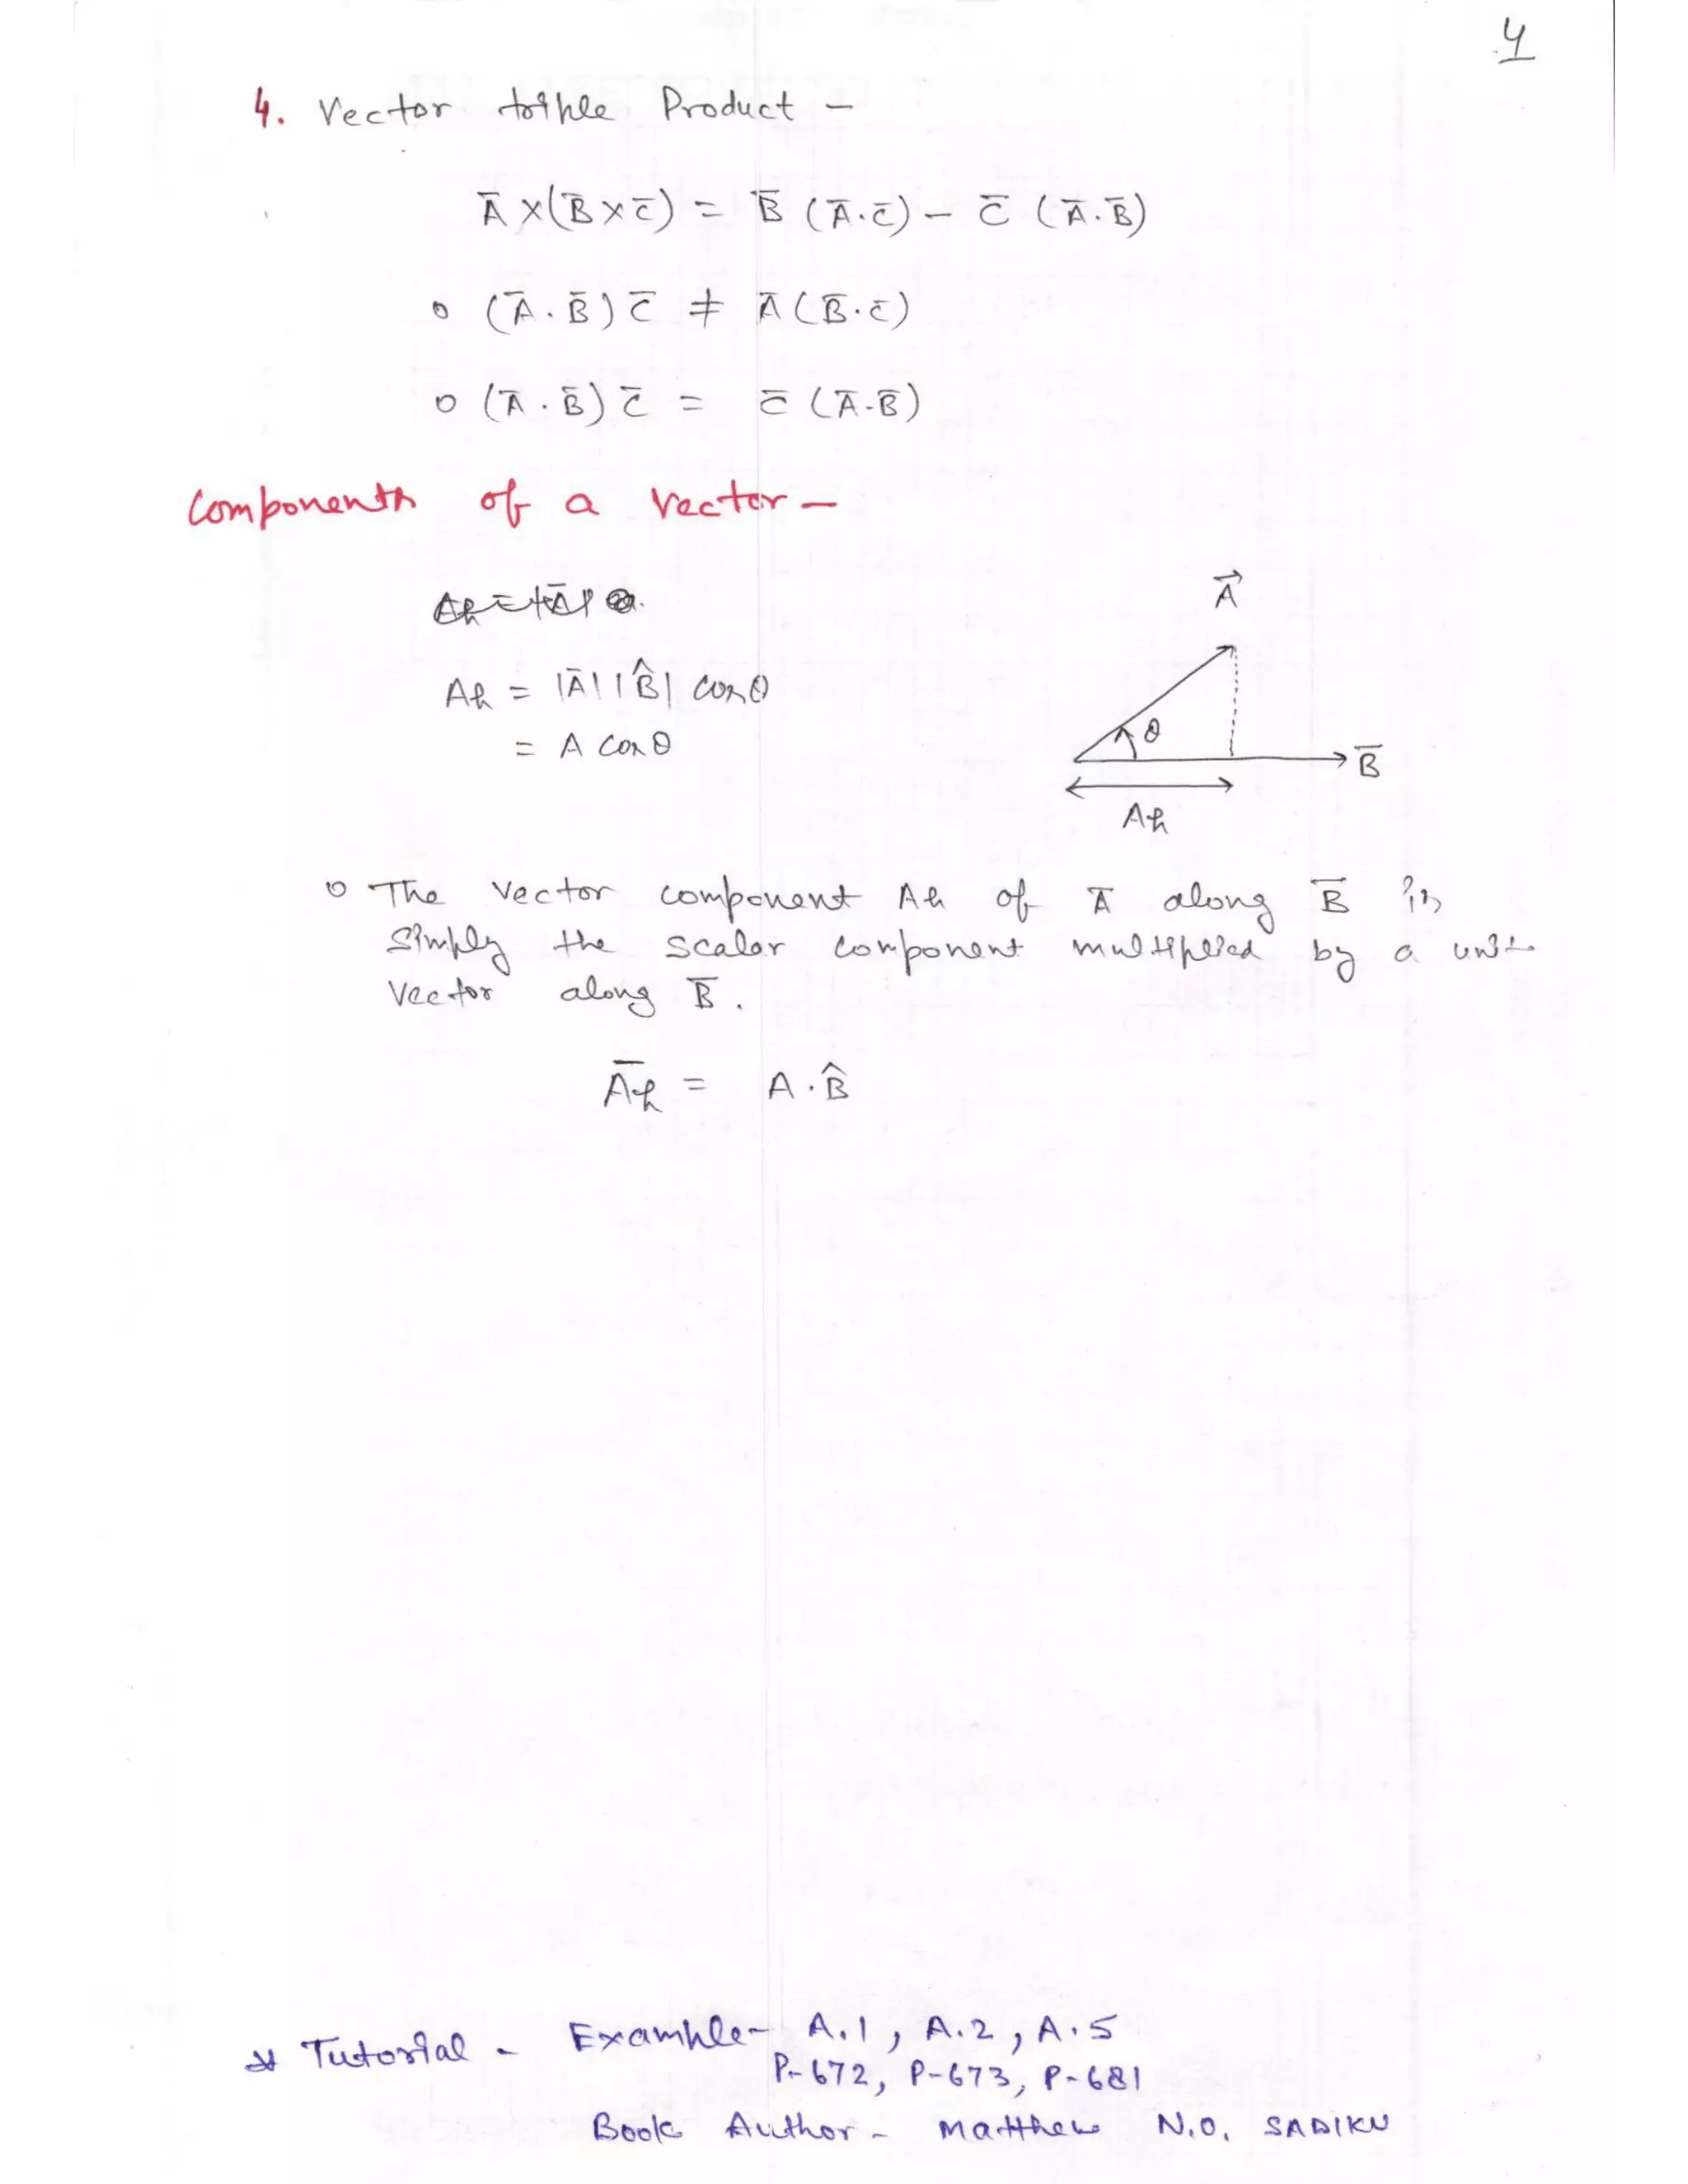 4
4. Vector triple Product –
Ā ×(B̄ × C̄) = B̄ (Ā.C̄) – C̄ (Ā.B̄)
o (Ā . B̄) C̄ ≠ Ā (B̄.C̄)
o (Ā . B̄) C̄ = C̄ (Ā.B̄)
Components of a Vector –
A⃗
AB = |Ā| |B̂| cosθ
θ
= A cosθ
B̄
AB
o The Vector component AB of Ā along B̄ is
Simply the Scalar component multiplied by a unit
Vector along B̄ .
ĀB = A . B̂
* Tutorial - Example- A.1 , A.2 , A.5
P-672, P-673, P-681
Book Author - Matthew N.O. SADIKU